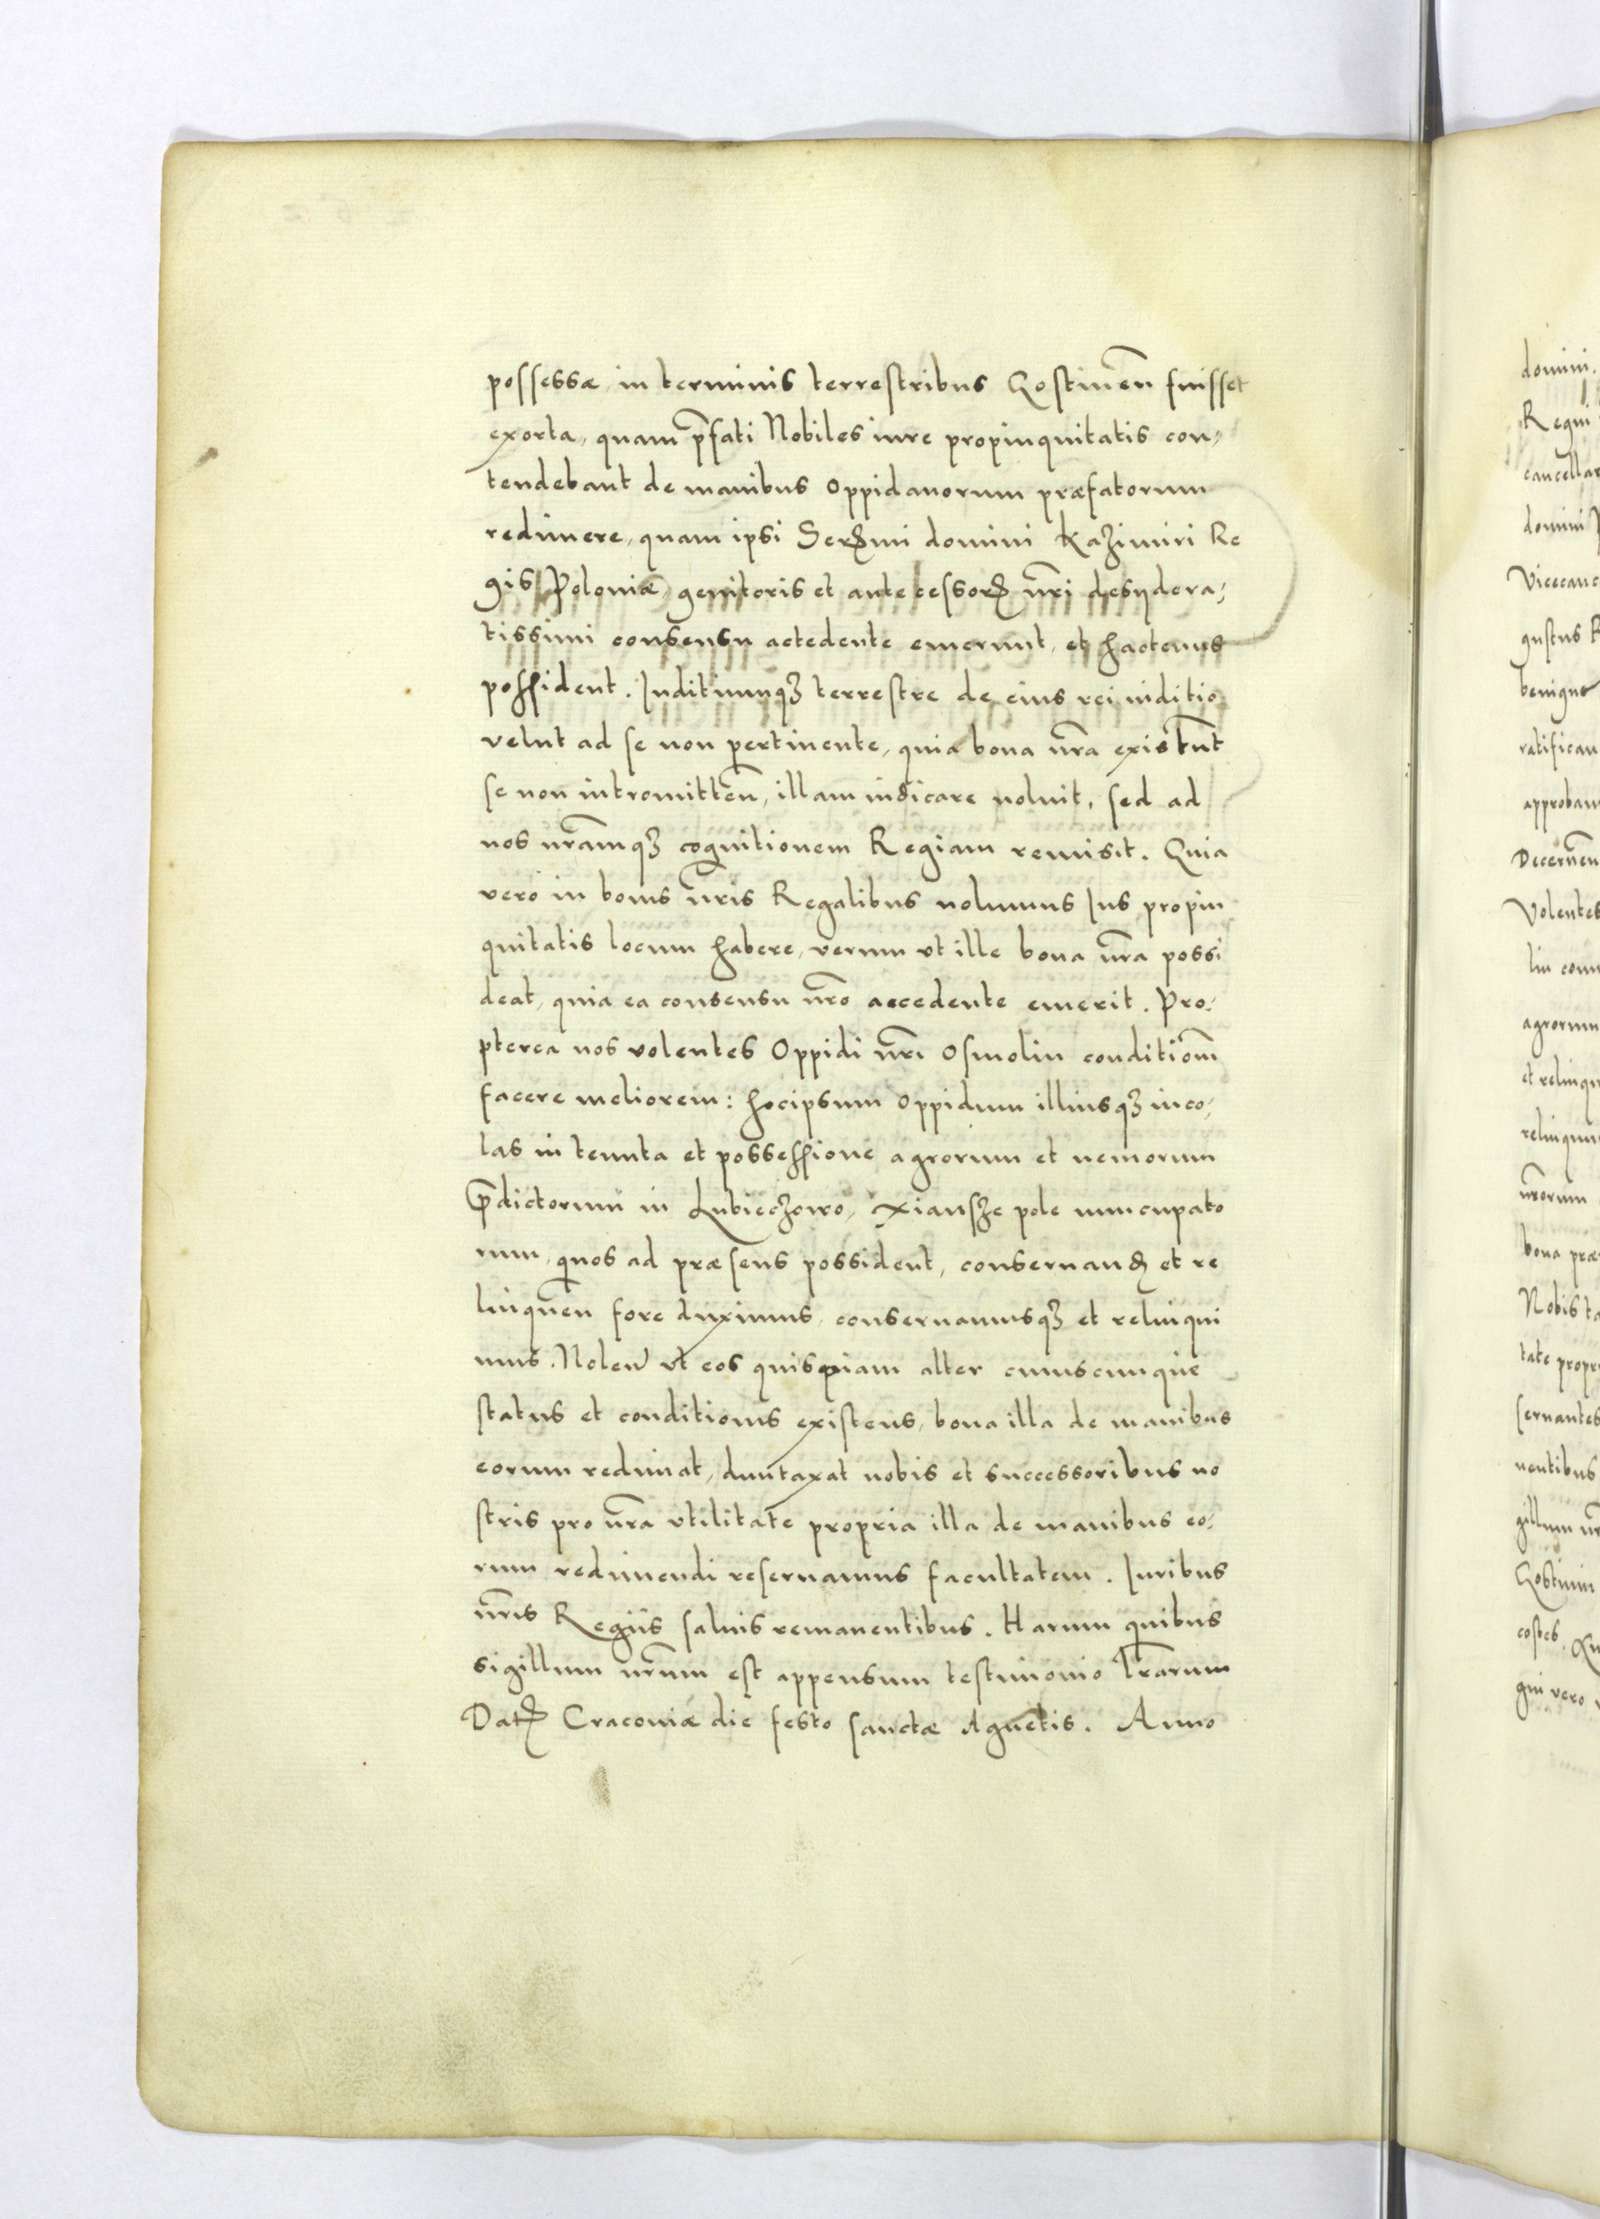 possessæ in terminis terrestribus Gostineñ fuisset
exorta, quam p̄fati Nobiles iure propinquitatis con-
tendebant de manibus oppidanorum præfatorum
redimere, quam ipsi Sermi domini Kazimiri Re
gis Poloniæ genitoris et antecessor͂ nr̄i desydera-
tissimi consensu accedente emerunt, et hactenus
possident. Juditiumqꝫ terrestre de eius rei iuditio
velut ad se non pertinente, quia bona nr̄a existunt
se non intromitteñ, illam iudicare noluit, sed ad
nos nr̄amqꝫ cognitionem Regiam remisit. Quia
vero in bonis nr̄is Regalibus nolumus Ius propin
quitatis locum habere, verum vt ille bona nr̄a possi
deat, quia ea consensu nr̄o accedente emerit. Pro-
pterea nos volentes Oppidi nr̄i Osmolin conditiom̄
facere meliorem: hocipsum oppidum illiusqꝫ inco-
las in tenuta et possessione agrorum et nemorum
p̄dictorum in Lubieczowo, Xiansze pole nuncupato
rum, quos ad præsens possident, conseruand͂ et re
linqueñ fore duximus, conseruamusqꝫ et relinqui
mus. Noleñ vt eos quispiam alter cuiuscunque
status et conditionis existens, bona illa de manibus
eorum redimat, duntaxat nobis et successoribus no
stris pro nr̄a vtilitate propria illa de manibus eo-
rum redimendi reseruamus facultatem. Iuribus
nr̄is Regiis saluis remanentibus. Harum quibus
sigillum nr̄um est appensum testimonio lr̄arum
Dat͂ Cracouiæ die festo sanctæ Agnetis. Anno